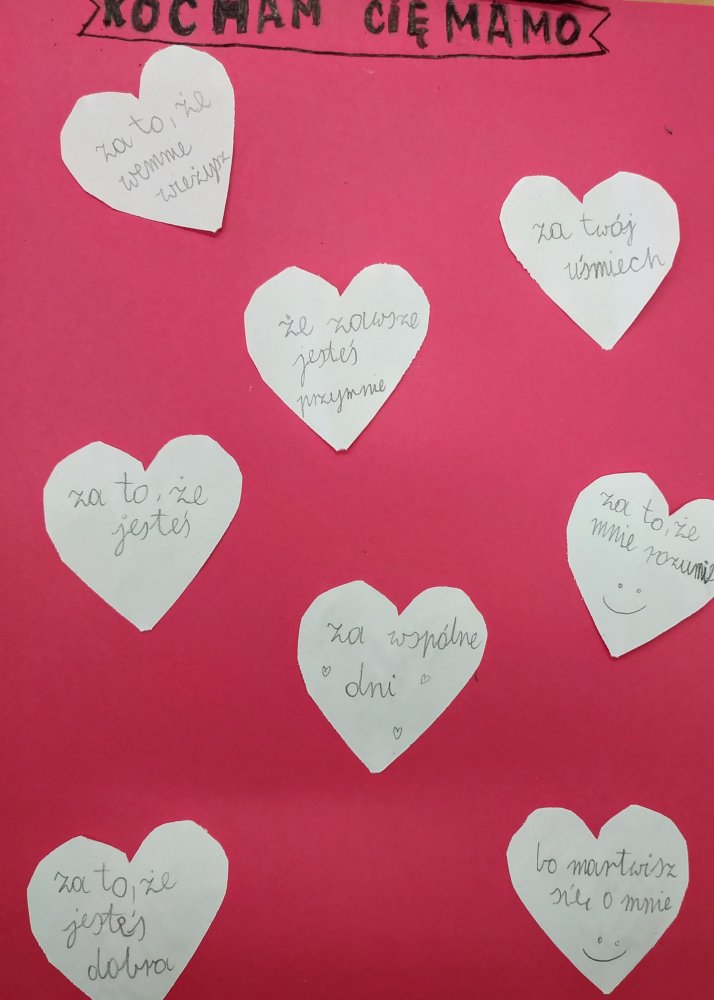 KOCHAM CIĘ MAMO
za to, że
wemnie
wieżysz
za twój
uśmiech
że zawsze
jesteś
przymnie
za to, że
jesteś
za to, że
mnie rozumie
za wspólne
dni
za to, że
jestęś
dobra
bo martwisz
się o mnie